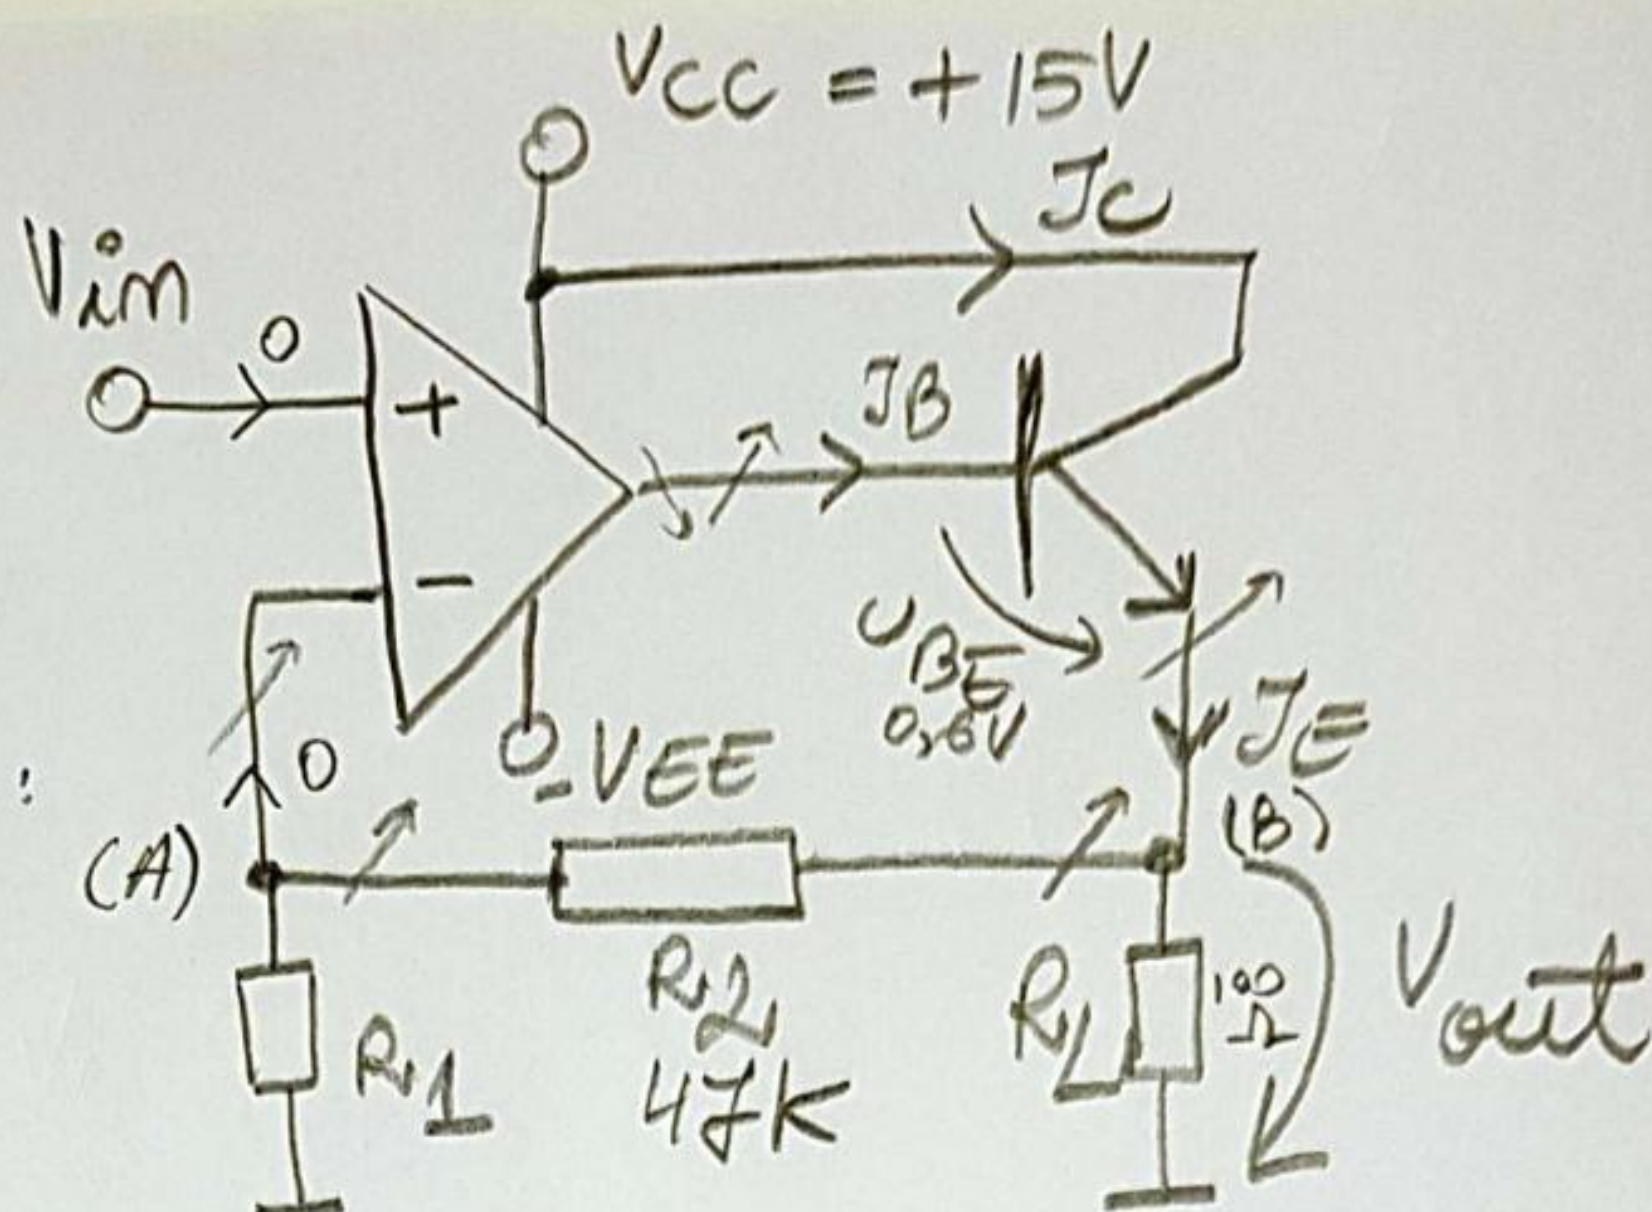 VCC = +15V
JC
Vin
0
+
JB
-
UBE
0,6V
JE
0
-VEE
(A)
(B)
R2
47K
R1
RL
100
Ω
Vout